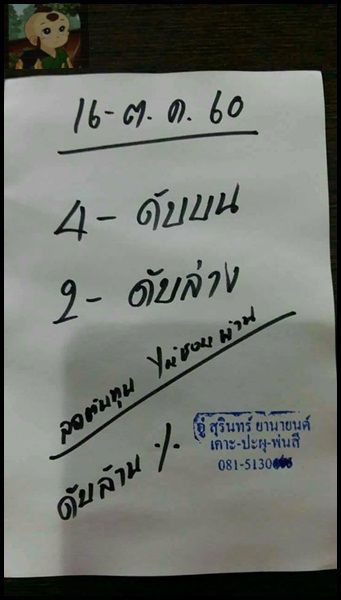 16-ต.ค.60
4 - ดับบน
2 - ดับล่าง
ลดต้นทุน ไม่ชอบผ่าน
ดับล้าน %
อู่ สุรินทร์ ยานายนต์
เคาะ-ปะผุ-พ่นสี
081-5130